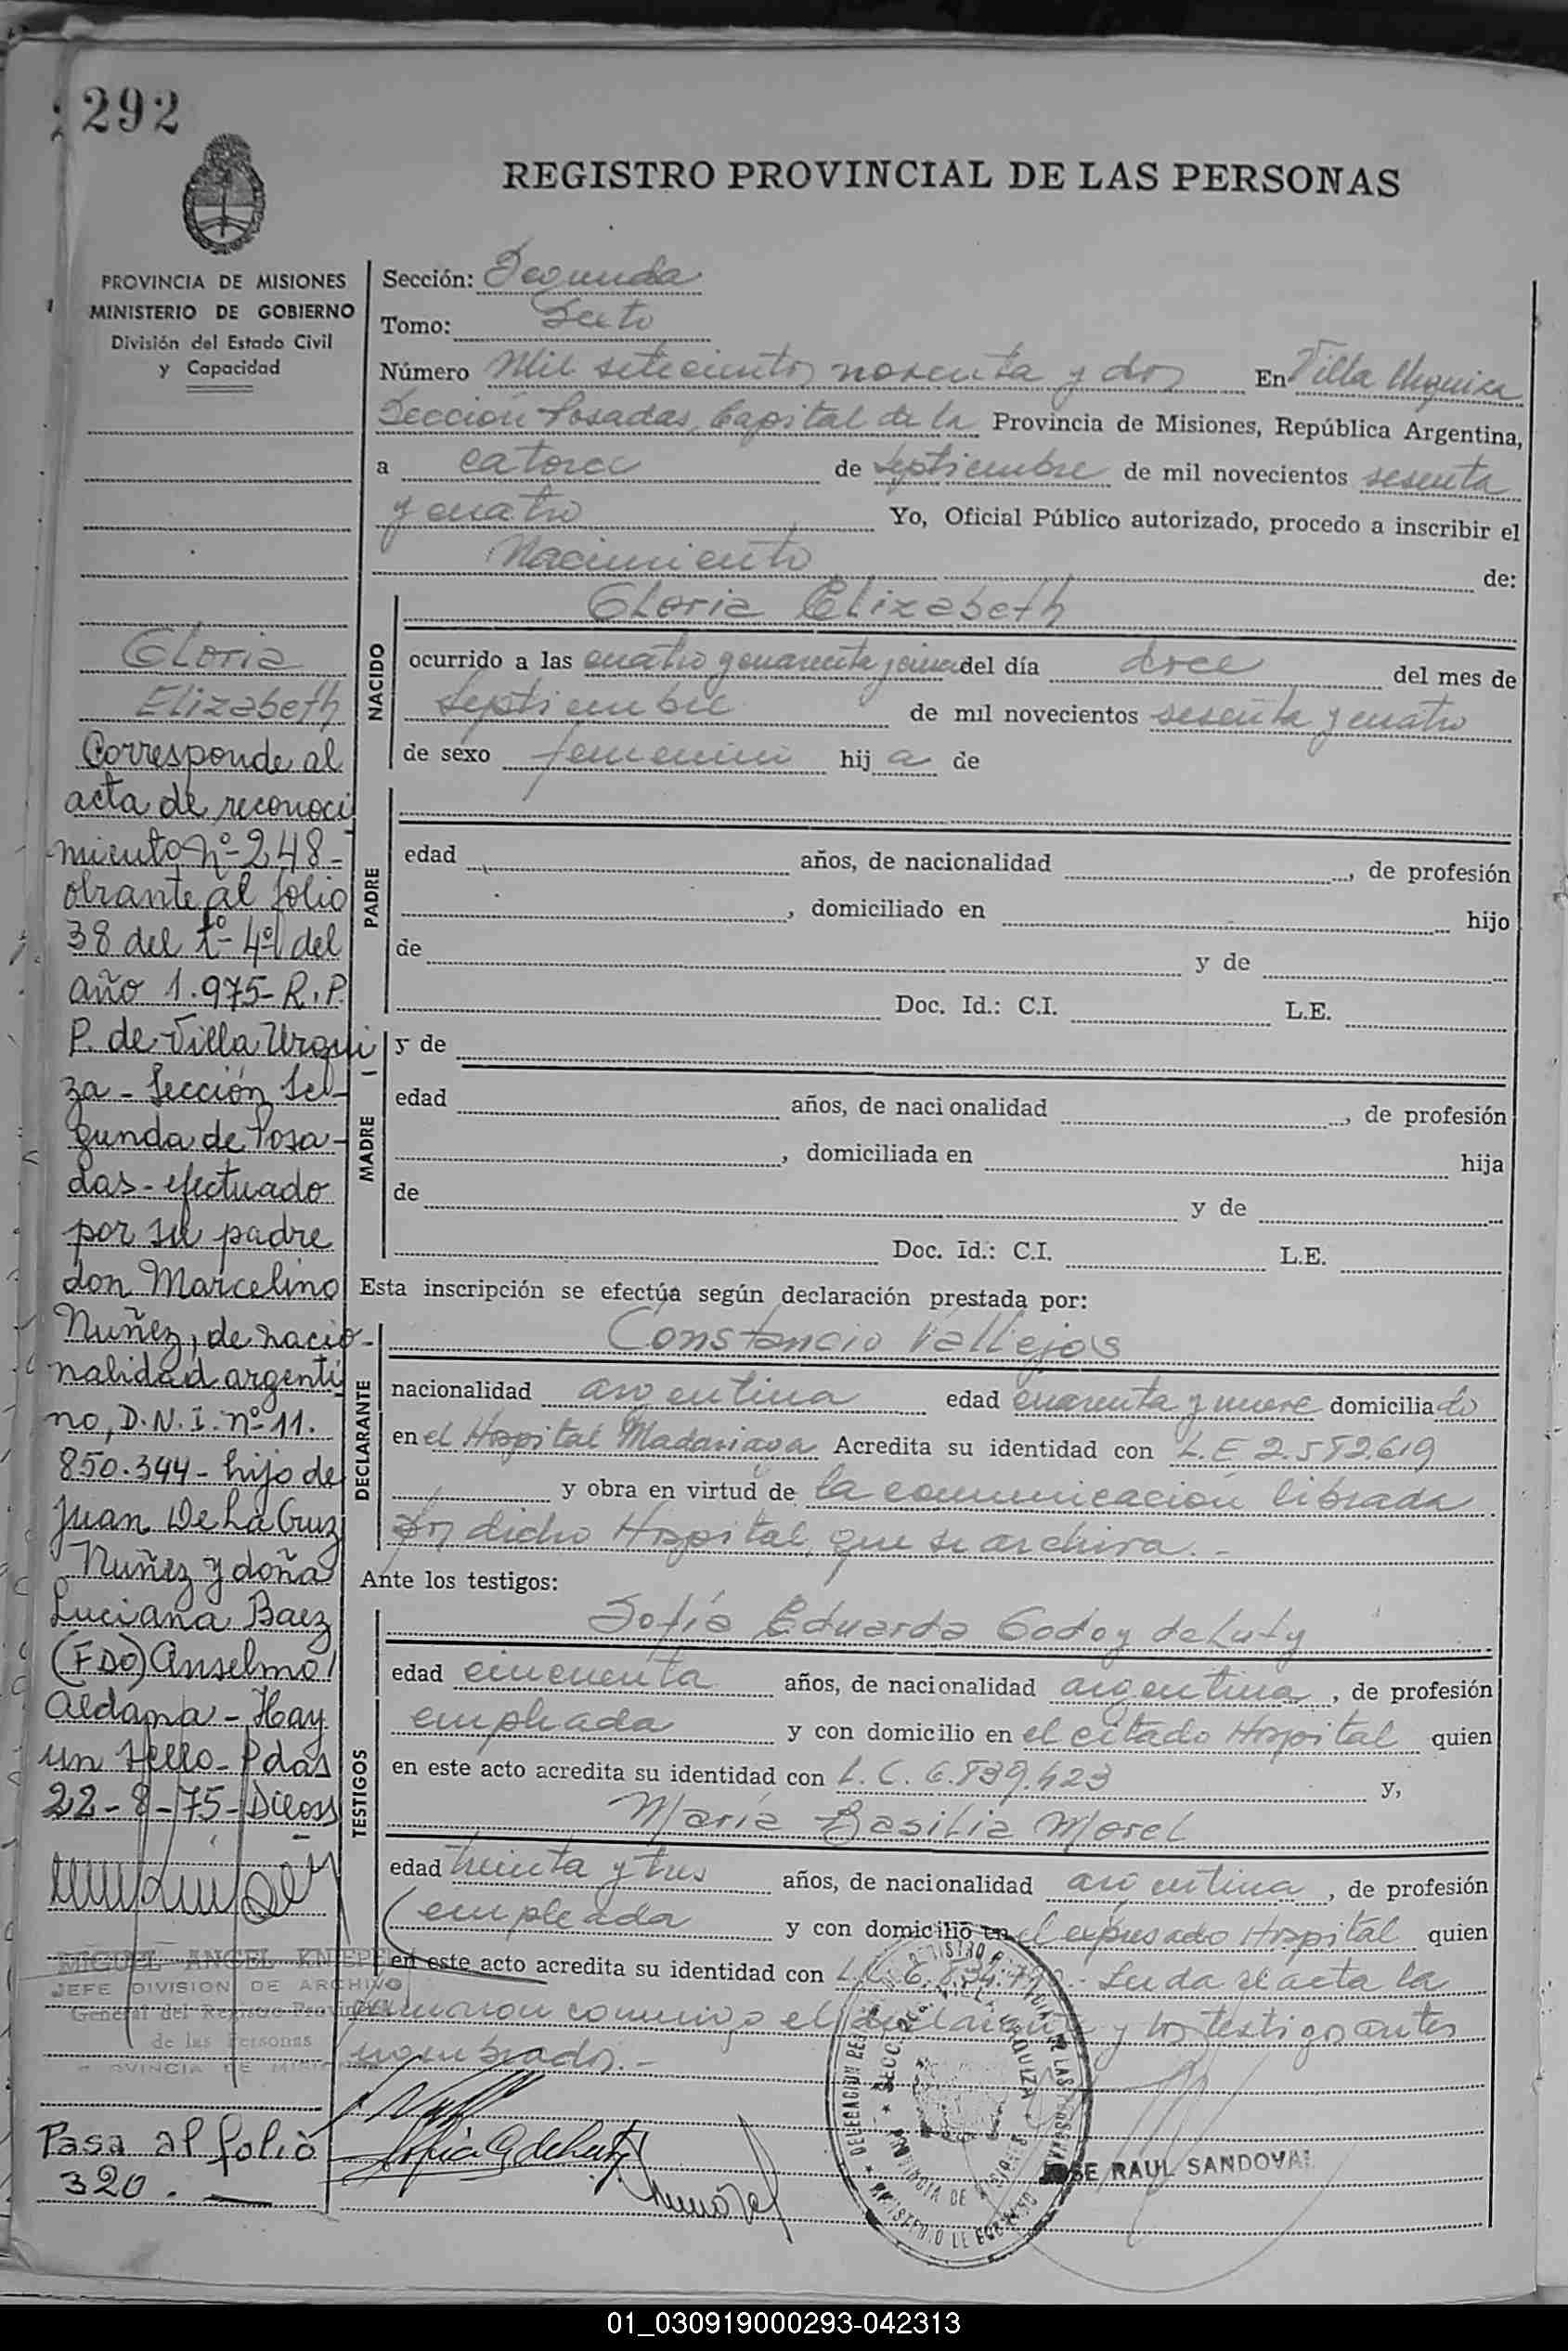 292
REGISTRO PROVINCIAL DE LAS PERSONAS
PROVINCIA DE MISIONES
MINISTERIO DE GOBIERNO
División del Estado Civil
y Capacidad
Gloria
Elizabeth
Corresponde al
acta de reconoci
miento nº 248-
obrante al folio
38 del tº 4º del
año 1.975- R.P.
P. de Villa Urqui
za - Sección Se-
gunda de Posa-
das - efectuado
por su padre
don Marcelino
Nuñez, de nacio-
nalidad argenti
no, D.N.I. nº 11.
850.344 - hijo de
Juan De La Cruz
Nuñez y doña
Luciana Baez
(FDO) Anselmo
Aldama - Hay
un sello - Pdas
22-8-75-
MIGUEL ANGEL
JEFE DIVISION DE ARCHIVO
General del Registro Provincial
de las Personas
PROVINCIA DE MISIONES
Pasa al folio
320.
Sección: Segunda
Tomo: Sexto
Número Mil setecientos noventa y dos En Villa Urquiza
Sección Posadas, Capital de la Provincia de Misiones, República Argentina,
a catorce de Septiembre de mil novecientos sesenta
y cuatro Yo, Oficial Público autorizado, procedo a inscribir el
Nacimiento de:
NACIDO
Gloria Elizabeth
ocurrido a las cuatro y cuarenta y cinco del día doce del mes de
Septiembre de mil novecientos sesenta y cuatro
de sexo femenino hij a de
PADRE
edad años, de nacionalidad , de profesión
, domiciliado en hijo
de y de
Doc. Id.: C.I. L.E.
MADRE
y de
edad años, de nacionalidad , de profesión
, domiciliada en hija
de y de
Doc. Id.: C.I. L.E.
Esta inscripción se efectúa según declaración prestada por:
DECLARANTE
Constancio Vallejos
nacionalidad argentina edad cuarenta y nueve domiciliado
en el Hospital Madariaga Acredita su identidad con L.E 2.582.619
y obra en virtud de la comunicación librada
por dicho Hospital, que se archiva.-
Ante los testigos:
TESTIGOS
Sofía Eduarda Godoy de Luty
edad cincuenta años, de nacionalidad argentina, de profesión
empleada y con domicilio en el citado Hospital quien
en este acto acredita su identidad con L.C. 6.839.423 y,
María Basilia Morel
edad treinta y tres años, de nacionalidad argentina, de profesión
empleada y con domicilio en el expresado Hospital quien
en este acto acredita su identidad con L.C. Leida el acta la
firmaron conmigo el declarante y los testigos antes
nombrados.-
Sofia G de Luty
JOSE RAUL SANDOVAL
01_030919000293-042313